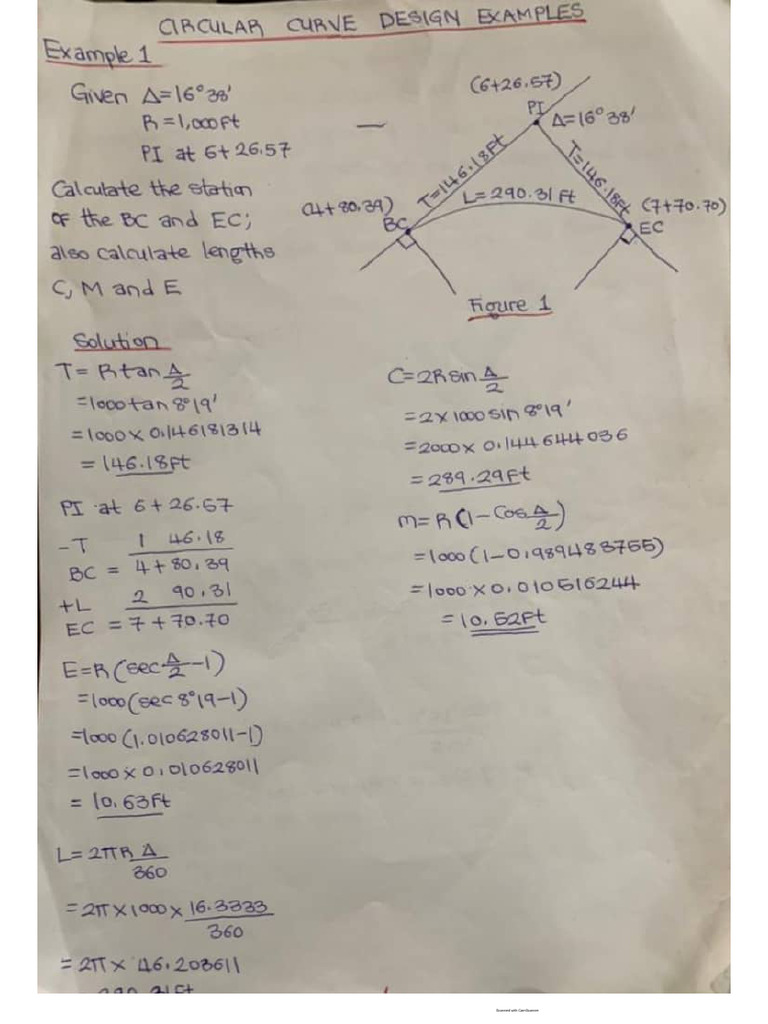 CIRCULAR CURVE DESIGN EXAMPLES
Example 1
Given Δ=16°38'
R=1,000ft
PI at 6+26.57
Calculate the station
of the BC and EC;
also calculate lengths
C, M and E
(6+26.57)
PI
Δ=16°38'
T=146.18ft
T=146.18ft
L=290.31ft
(4+80.39)
BC
(7+70.70)
EC
Figure 1
Solution
T=Rtan Δ/2
=1000tan 8°19'
=1000×0.146181314
=146.18ft
PI at 6+26.57
-T 1 46.18
BC = 4+80.39
+L 2 90.31
EC = 7+70.70
E=R(sec Δ/2 -1)
=1000(sec 8°19-1)
=1000(1.010628011-1)
=1000×0.010628011
=10.63ft
L=2πR Δ/360
=2π×1000×16.3333/360
=2π×46.203611
C=2Rsin Δ/2
=2×1000sin 8°19'
=2000×0.144644036
=289.29ft
m=R(1-Cos Δ/2)
=1000(1-0.989483755)
=1000×0.010516244
=10.52ft
Scanned with CamScanner